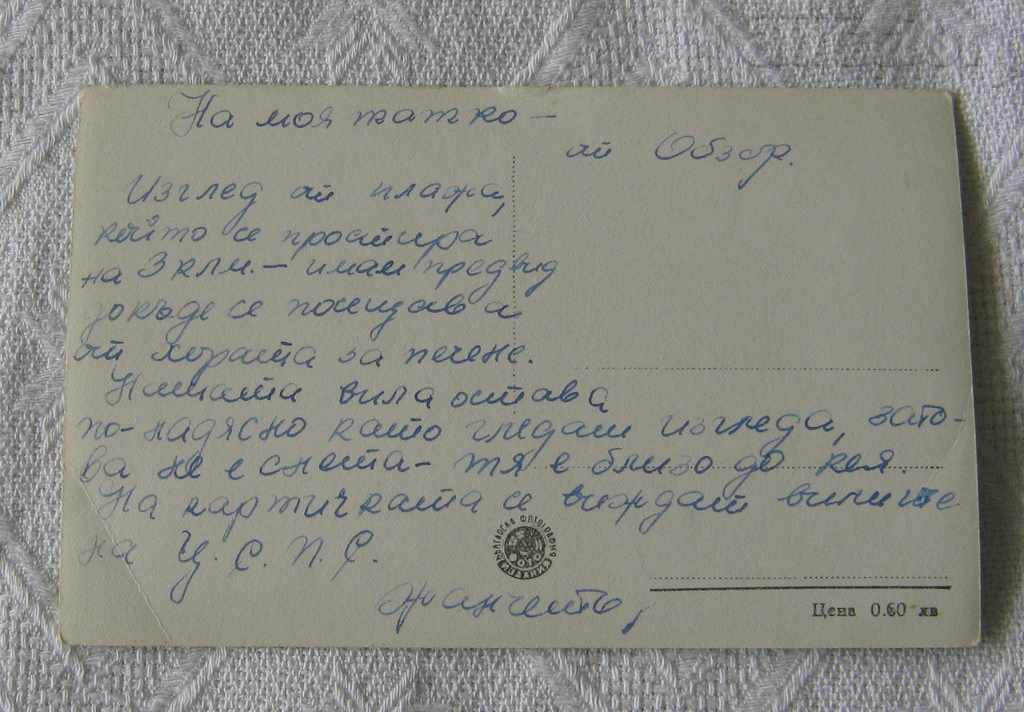 На моя татко –
от Обзор.
Изглед от плажа,
който се простира
на 3 клм. – имам предвид
докъде се посещава
от хората за печене.
Нашата вила остава
по-надясно като гледаш изгледа, зато-
ва не е снета – тя е близо до кея.
На картичката се виждат вилите
на Ц. С. П. С.
Жанчето,
БЪЛГАРСКА ФОТОГРАФИЯ
Цена 0.60 лв